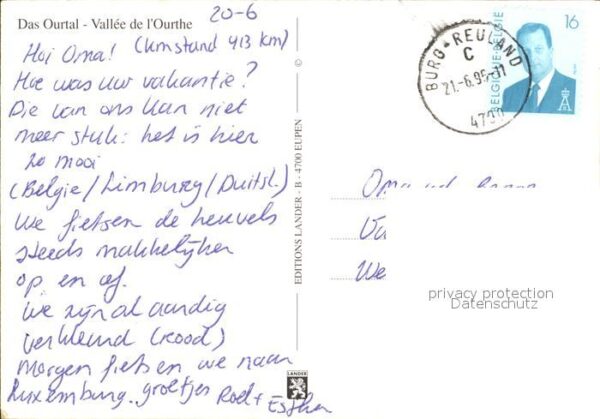 Das Ourtal - Vallée de l'Ourthe
20-6
Hoi Oma! (kmstand 413 km)
Hoe was uw vakantie?
Die van ons kan niet
meer stuk: het is hier
zo mooi
(Belgie/Limburg/Duitsl.)
We fietsen de heuvels
steeds makkelijker
op en af.
We zijn al aardig
verkleurd (rood)
Morgen fietsen we naar
Luxemburg. groetjes Roel + Esther
EDITIONS LANDER - B - 4700 EUPEN
LANDER
BURG-REULAND
C
21.-6.95-11
4790
BELGIQUE-BELGIE
16
Oma
We
privacy protection
Datenschutz